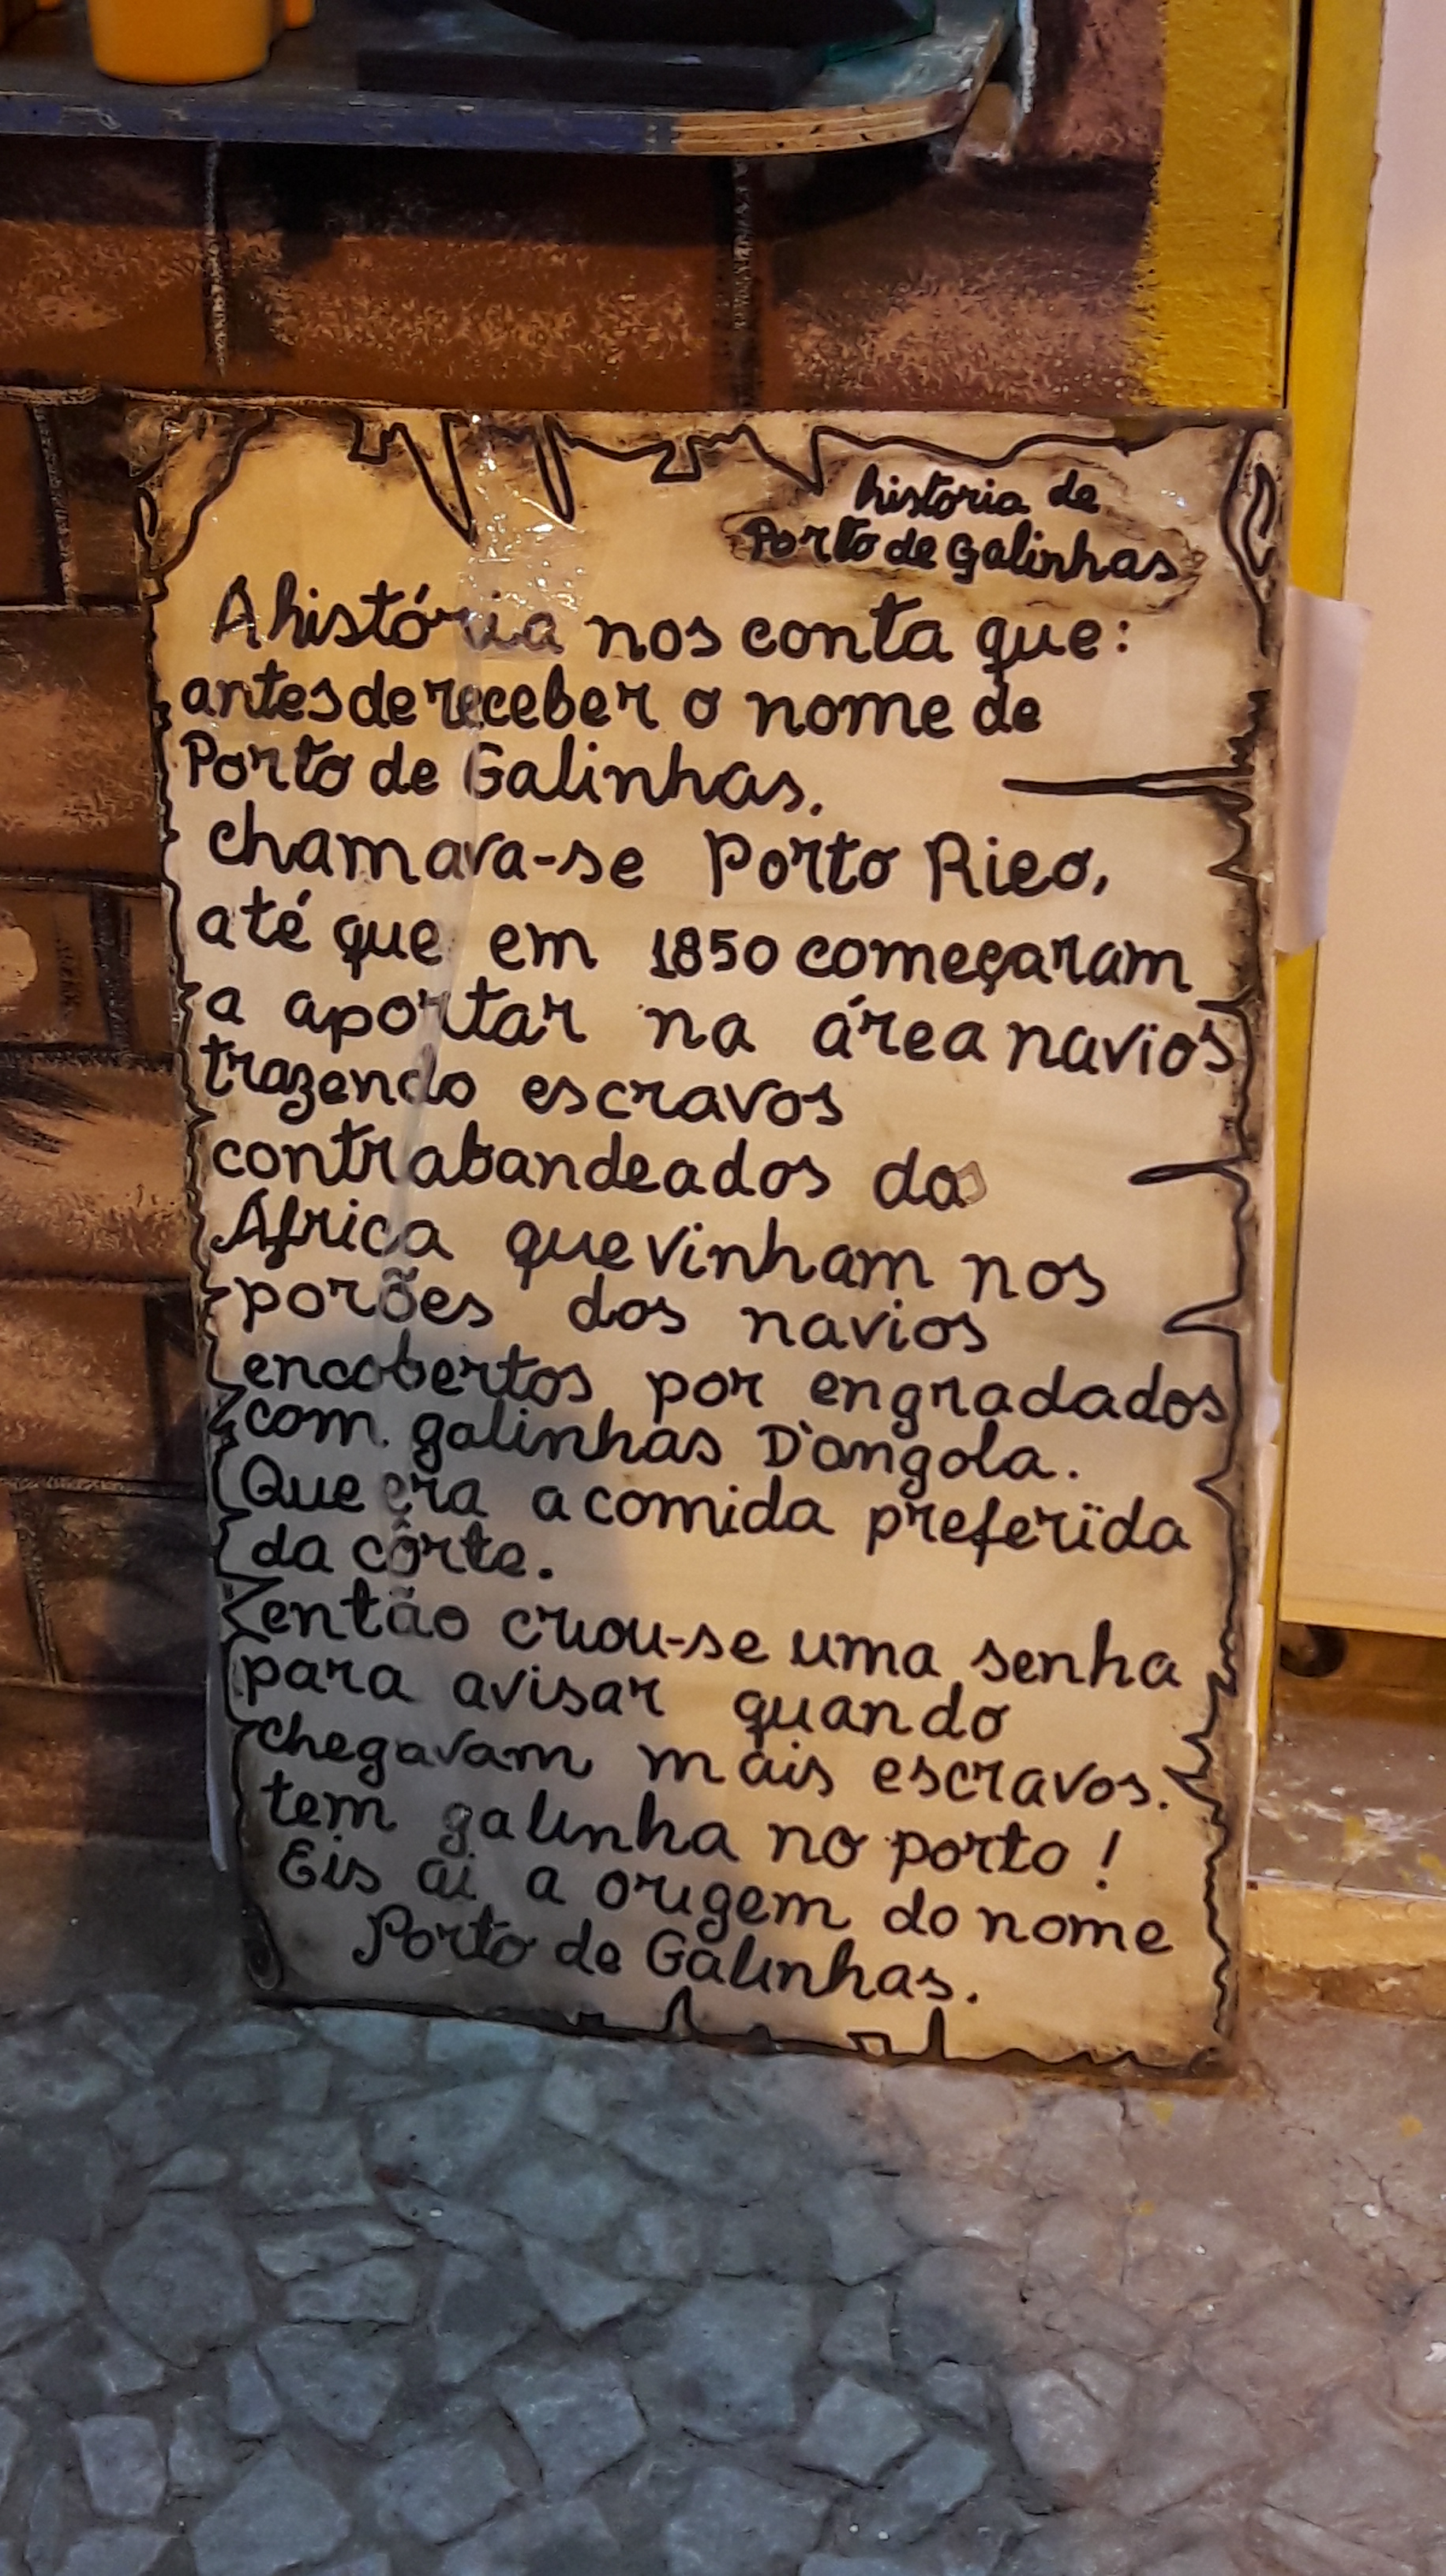 historia de
Porto de Galinhas
A história nos conta que:
antes de receber o nome de
Porto de Galinhas.
chamava-se Porto Rico,
até que em 1850 começaram
a aportar na área navios
trazendo escravos
contrabandeados da
África que vinham nos
porões dos navios
encobertos por engradados
com galinhas D'angola.
Que era a comida preferida
da côrte.
então criou-se uma senha
para avisar quando
chegavam mais escravos.
tem galinha no porto!
Eis ai a origem do nome
Porto de Galinhas.